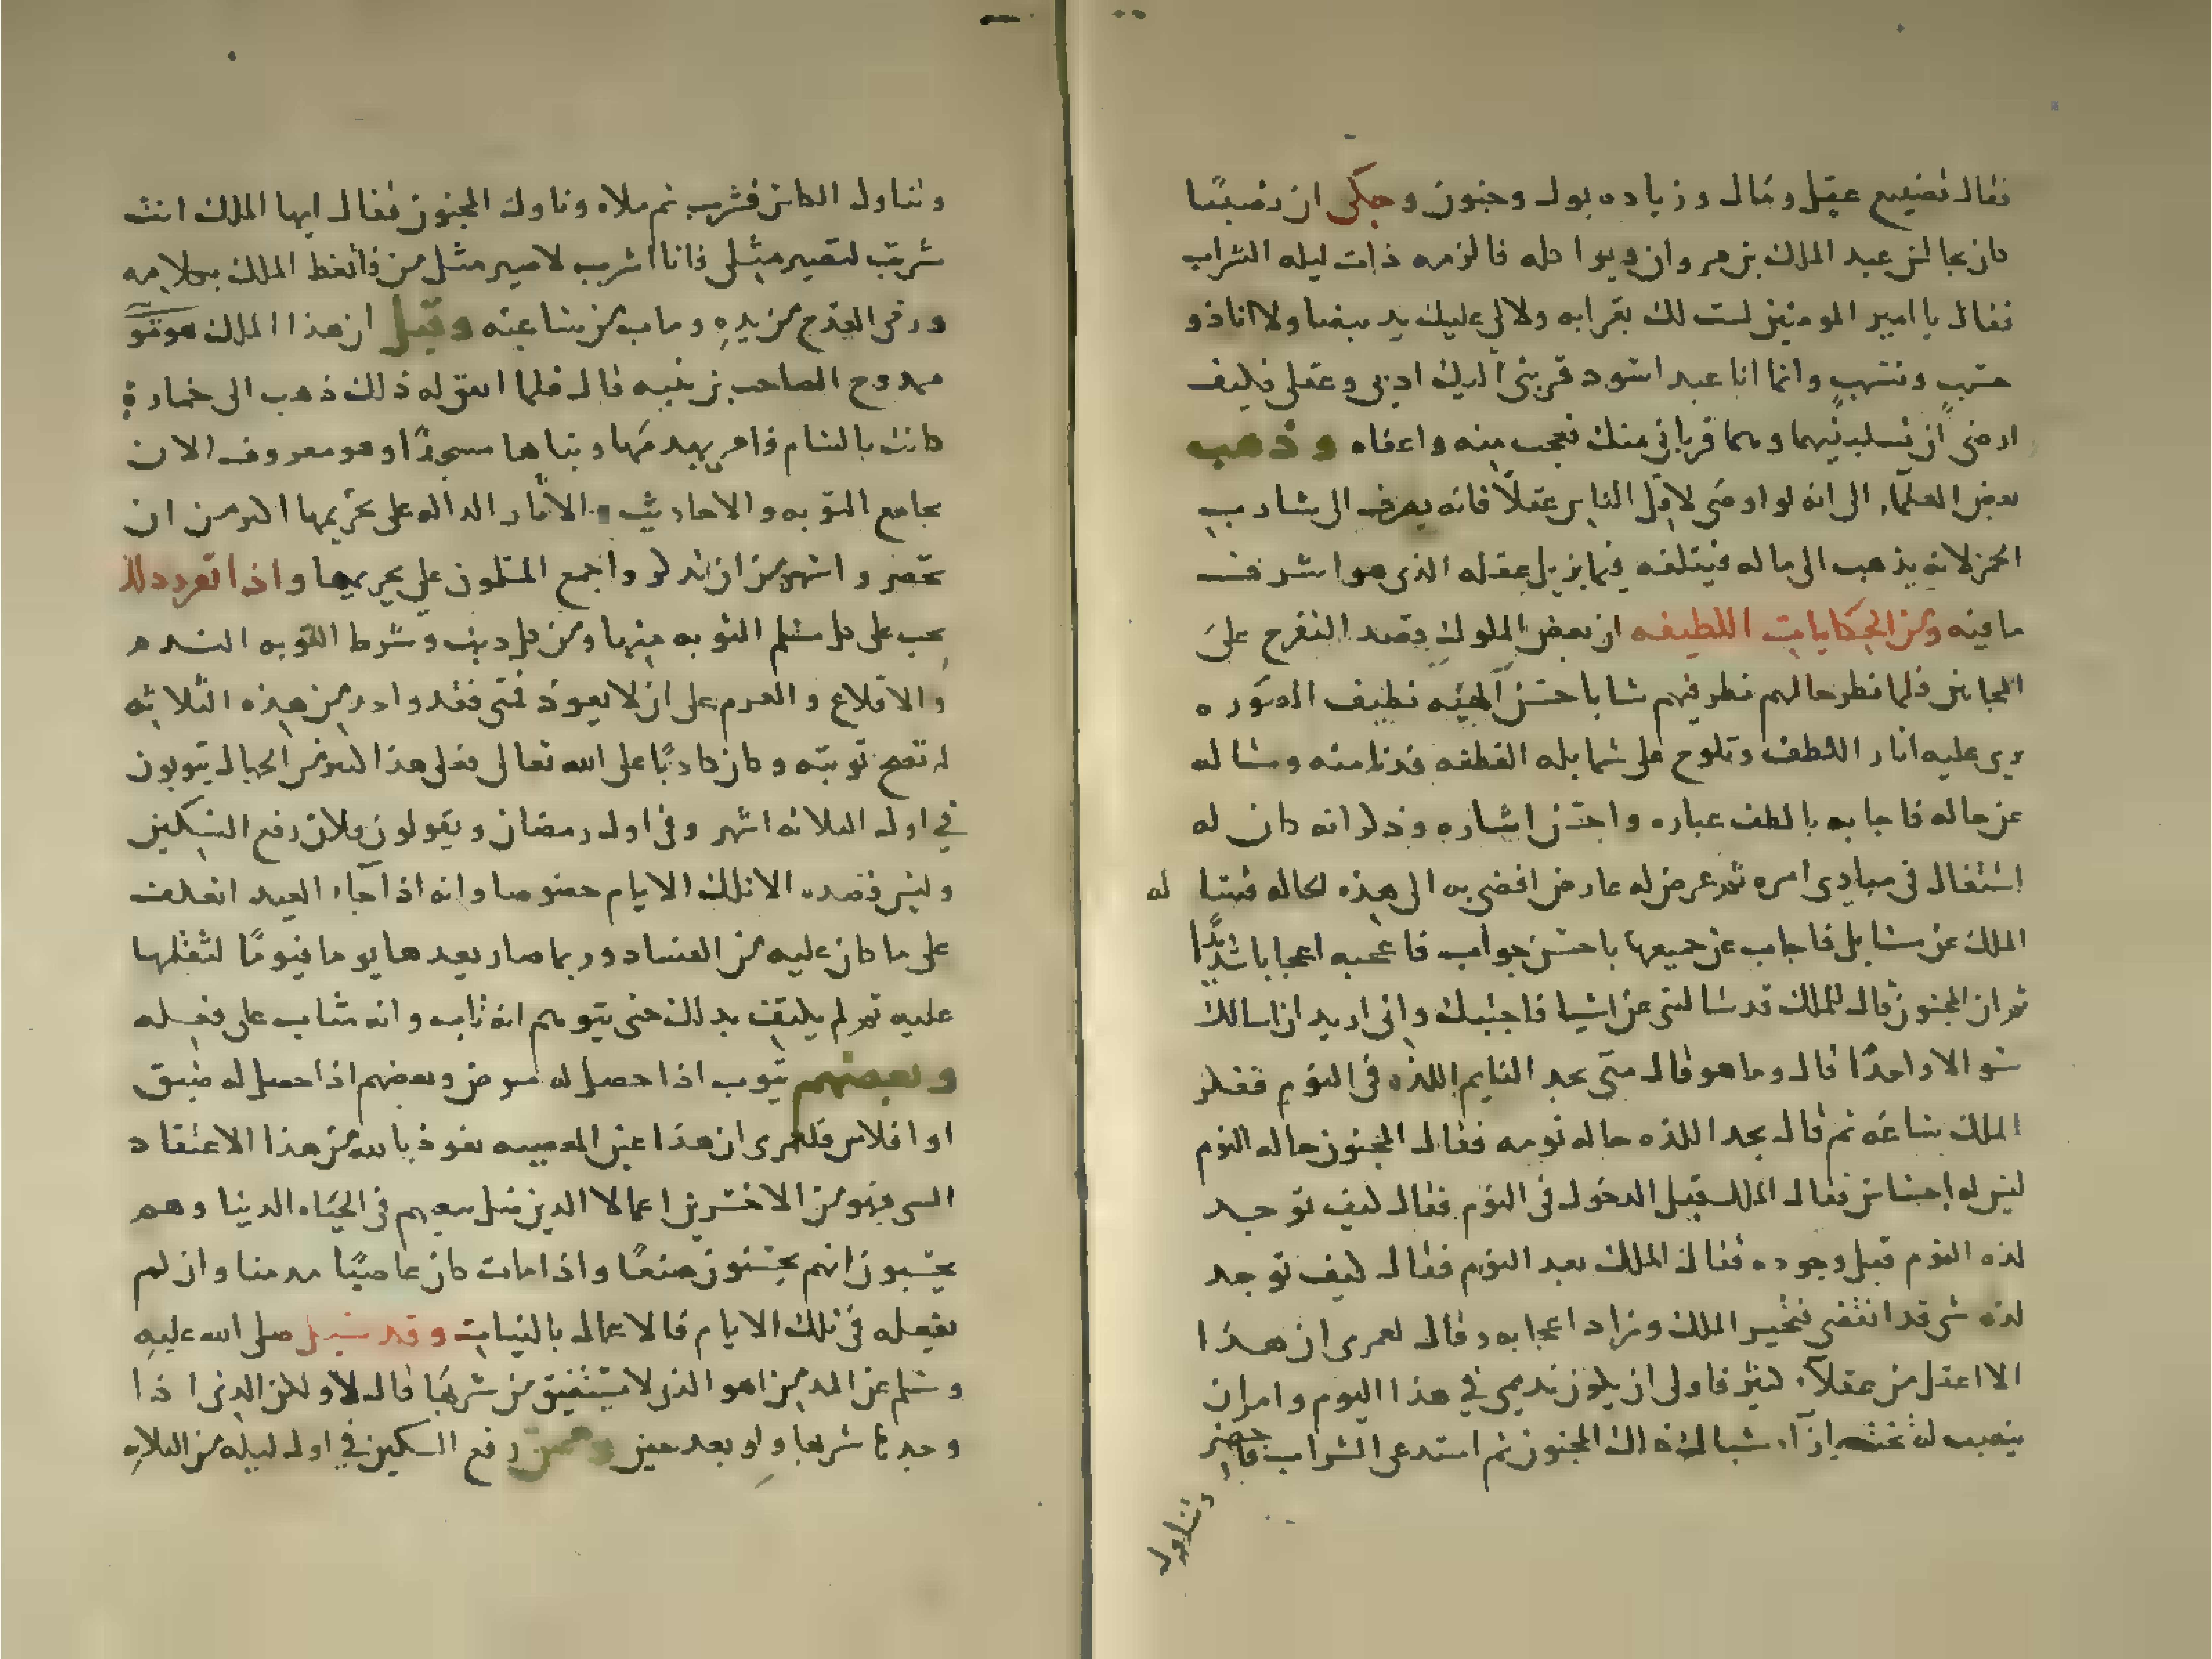 فقال تضييع عقل ومال وزياده بول وجنون وحكى ان نصيبا
كان يجالس عبد الملك بن مروان ويواكله فالزمه ذات ليله الشراب
فقال يا امير المومنين لست لك بقرابه ولا لي عليك يد بيضا ولا انا ذو
حسب ونسب وانما انا عبد اسود قربني اليك ادبي وعقلي فكيف
ارضى ان تسلبنيهما وهما قرباني منك فعجب منه واعفاه وذهب
بعض العلماء الى انه لو اوصى لاقل الناس عقلا فانه يصرف الى شارب
الخمر لانه يذهب الى ماله فيتلفه فيما يزيل عقله الذي هو اشرف
ما فيه ومن الحكايات اللطيفه ان بعض الملوك قصد التفرج على
المجانين فلما نظر حالهم نظر فيهم شابا حسن الهيئه نظيف الصوره
يرى عليه اثار اللطف وتلوح على شمايله الفطنه فدنا منه وساله
عن حاله فاجابه بالطف عباره واحسن اشاره وذكر انه كان له
اشتغال في مبادي امره ثم عرض له عارض افضى به الى هذه الحاله فسا له
الملك عن مسايل فاجاب عن جميعها باحسن جواب فاعجبه اعجابا شديدا
ثم ان المجنون قال للملك قد سالتني عن اشيا فاجبتك واني اريد ان اسالك
سوالا واحدا قال وما هو قال متى يجد النايم اللذه في النوم ففكر
الملك ساعه ثم قال يجد اللذه حاله نومه فقال المجنون حاله النوم
ليس له احساس فقال الملك قبل الدخول في النوم فقال كيف توجد
لذه النوم قبل وجوده فقال الملك بعد النوم فقال كيف توجد
لذه شي قد انقضى فتحير الملك وزاد اعجابه وقال لعمري ان هذا
الا اعقل من عقلاء كثير فاولى ان يكون نديمي في هذا اليوم وامر ان
ينصب له تخت بازاء شباك ذلك المجنون ثم استدعى الشراب فاحضر
وتناول
وتناول الكاس فشرب ثم ملاه وناول المجنون فقال ايها الملك انت
شربت لتصير مثلي فانا اشرب لاصير مثل من فاتعظ الملك بكلامه
ورمى القدح من يده وتاب من ساعته وقيل ان هذا الملك هو
ممدوح الصاحب بن نبيه قال فلما اتفق له ذلك ذهب الى خمارة
كانت بالشام فامر بهدمها وبناها مسجدا وهو معروف الان
بجامع التوبه والاحاديث والاثار الداله على تحريمها اكثر من ان
تحصر واشهر من ان تذكر واجمع المسلمون على تحريمها واذا تقرر ذلك
يجب على كل مسلم التوبه منها ومن كل ذنب وشرط التوبه الندم
والاقلاع والعزم على ان لا يعود فمتى فقد واحد من هذه الثلاثه
لم تصح توبته وكان كاذبا على الله تعالى فعلى هذا كثير من الجهال يتوبون
في اول الثلاثه اشهر وفي اول رمضان ويقولون فلان رفع السكين
وليس قصده الا تلك الايام خصوصا وانه اذا جاء العيد انعكف
على ما كان عليه من الفساد وربما صار يعدها يوما فيوما لثقلها
عليه ثم لم يكتف بذلك حتى يتوهم انه تايب وانه مثاب على فعله
وبعضهم يتوب اذا حصل له مرض وبعضهم اذا حصل له ضيق
او افلاس فلعمري ان هذا عين المصيبه نعوذ بالله من هذا الاعتقاد
السي فهو من الاخسرين اعمالا الذين ضل سعيهم في الحياه الدنيا وهم
يحسبون انهم يحسنون صنعا واذا مات كان عاصيا مدمنا وان لم
يفعله في تلك الايام فالاعمال بالنيات وقد سيل صلى الله عليه
وسلم عن المدمن اهو الذي لا يستفيق من شربها قال لا ولكن الذي اذا
وجدها شربها ولو بعد حين وممن رفع السكين في اول ليله من الثلاثه